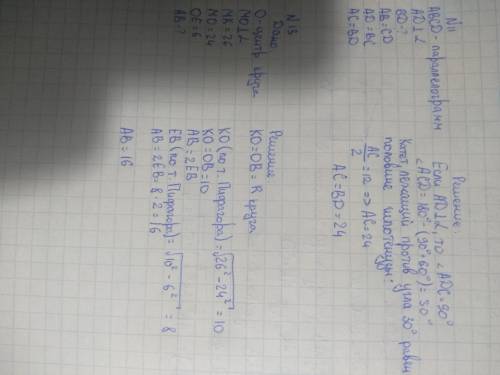 N11
ABCD - параллелограмм
AD⊥α
BD - ?
AB = CD
AD = BC
AC = BD
Решение.
Если AD⊥α, то ∠ADC = 90°
∠ACD = 180° - (90° + 60°) = 30°
Катет, лежащий против угла 30° равен
половине гипотенузы.
AC/2 = 12 => AC = 24
AC = BD = 24
N13
Дано
O - центр круга
MO⊥α
MK = 26
MO = 24
OE = 6
AB - ?
Решение
KO = OB = R круга
KO (по т. Пифагора) = √26² - 24² = 10
KO = OB = 10
AB = 2EB
EB (по т. Пифагора) = √10² - 6² = 8
AB = 2EB = 8 · 2 = 16
AB = 16